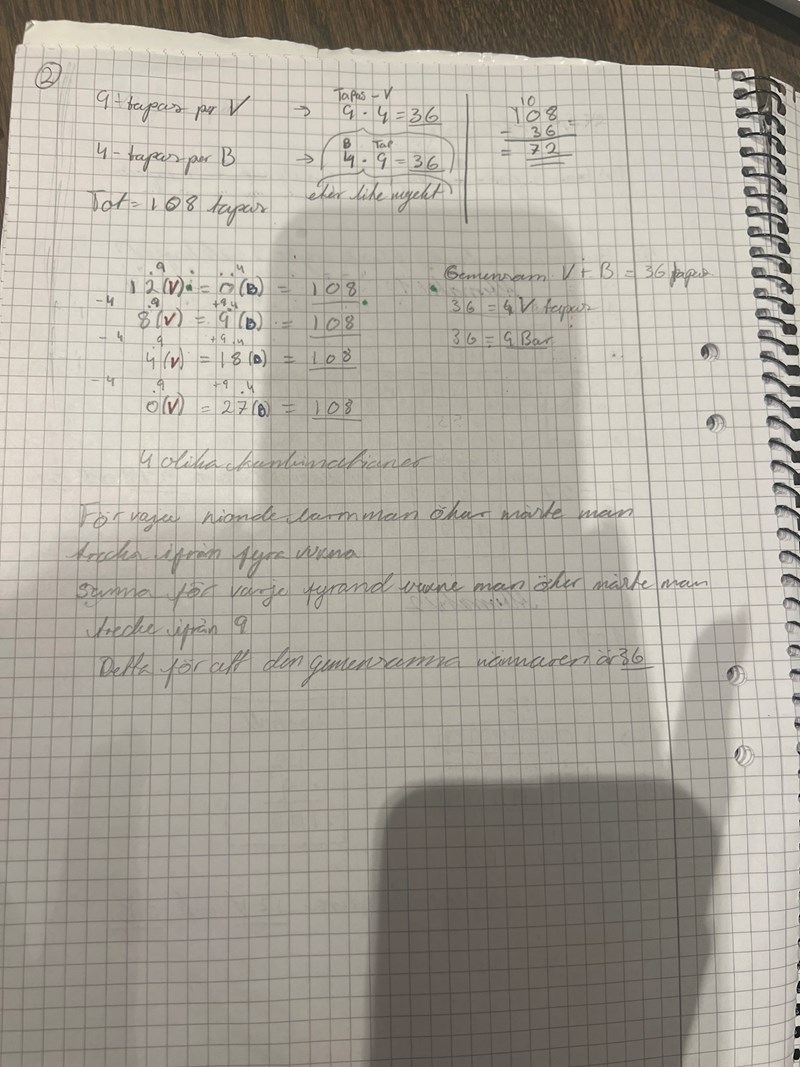 ②
9-tapas per V → Tapas-V
9 · 4 = 36
4-tapas per B → B Tap
4 · 9 = 36
Tot = 108 tapas
eker like mycket
10
108
- 36
= 72
.9 ..4
12(V) = 0(B) = 108
-4 .9 +9.4
8(V) = 9(B) = 108
-4 9 +9.4
4(V) = 18(B) = 108
-4 .9 +9 .4
0(V) = 27(B) = 108
Gemensam V+B = 36 tapas
36 = 4 V tapas
36 = 9 Bar
4 olika kombinationer
För varje nionde barn man öker måste man
trecka ifrån fyra vuxna
Samma för varje fyrand vuxne man öker måste man
trecke ifrån 9
Detta för att den gemensamma nämnaren är 36